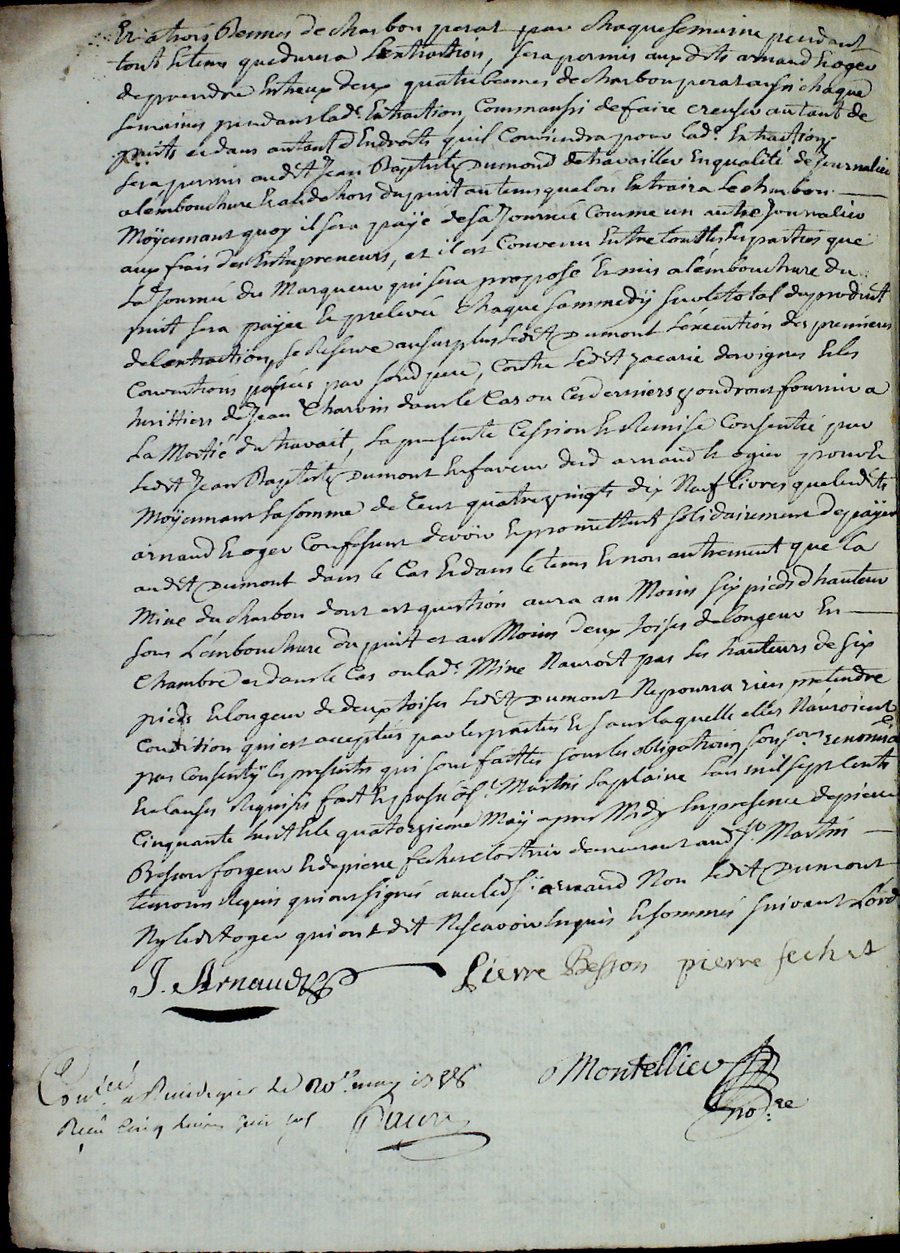 Et atrois Bennes de charbon perat par chaque semaine pendant
tout letems quedurera Lextraction, sera permis aux dits arnaud & oger
de prendre Entreux deux quatre bennes de charbon perat aussi chaque
semaine pendant lad.e Extraction, Comm aussi de faire creuser autant de
puits et dans autant d'Endroits quil Conviendra pour lad.e Extraction;
sera permis audit Jean Baptiste Dumond de travailler En qualité de Journalier
alembouchure & audehors du puit au tems que lon Extraira Le charbon
Moÿennant quoy il sera payé de sa Journée Comme un autre Journalier
aux frais des Entrepreneurs, et il est Convenu Entre touttes les parties que
La Journée du Marqueur qui sera proposé & mis a lémbouchure du
puit sera payée & prelevée chaque sammedÿ sur le total du produit
de lextraction, se Reserve au surplus ledit Dumont Lexécution des premieres
Conventions passées par son pere, Contre ledit zacarie & les
herittiers de Jean Charvin dans le Cas ou Ces derniers voudront fournir a
La Moitié du travail, La presente Cession & Remise Consentie par
Ledit Jean Baptiste Dumont En faveur desd arnaud & ogier
Moÿennant la somme de Cent quatrevingts dix Neuf livres que lesdits
arnaud & oger Confessent devoir & promettent solidairement de payer
audit Dumont dans le Cas & dans le tems & non autrement que la
Mine du charbon dont est question aura au Moins six pieds d'hauteur
sous L'embouchure du puit et au Moins deux toises de longeur En
Chambre et dans le Cas ou lad.e Mine Nauroit pas les hauteurs de six
pieds & longeur de deux toises ledit Dumont Ne pourra rien pretendre
Condition qui est acceptée par les parties & sans laquelle elles N'auroient
pas Consentÿ les presentes qui sont faittes sous les obligations,
& Clauses Requises fait & passé a S.t Martin Laplaine Lan mil sept Cents
Cinquante huit & le quatorzieme Maÿ apres Midy En presence de pierre
Besson forgeur & de pierre fechet cloutrier demeurant aud S.t Martin
temoins Requis qui ont signés avec led S.r arnaud Non ledit Dumont
Ny ledit oger qui ont dit Ne scavoir Enquis & sommés suivant L'ord
J. Arnaud
Pierre Besson pierre fechet
Montellier
no.re
Con.lé a le 20.e may 1758
Reçu Cinq livres
Faure